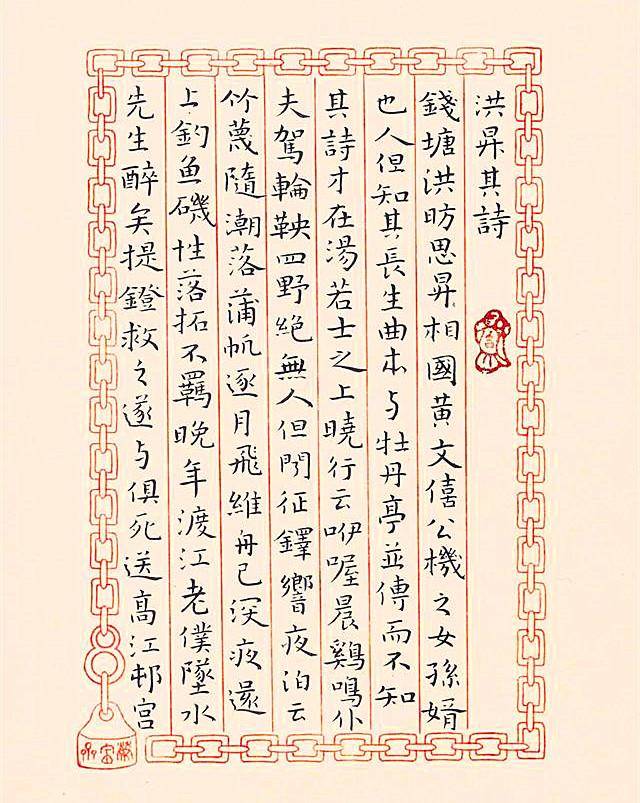 洪昇其詩
錢塘洪昉思昇相國黃文僖公機之女孫婿
也人但知其長生曲本与牡丹亭並傳而不知
其詩才在湯若士之上曉行云咿喔晨鷄鳴仆
夫駕輪鞅四野絶無人但聞征鐸響夜泊云
竹篾隨潮落蒲帆逐月飛維舟已深夜還
上釣魚磯性落拓不羈晚年渡江老僕墜水
先生醉矣提鐙救之遂与俱死送高江邨宫